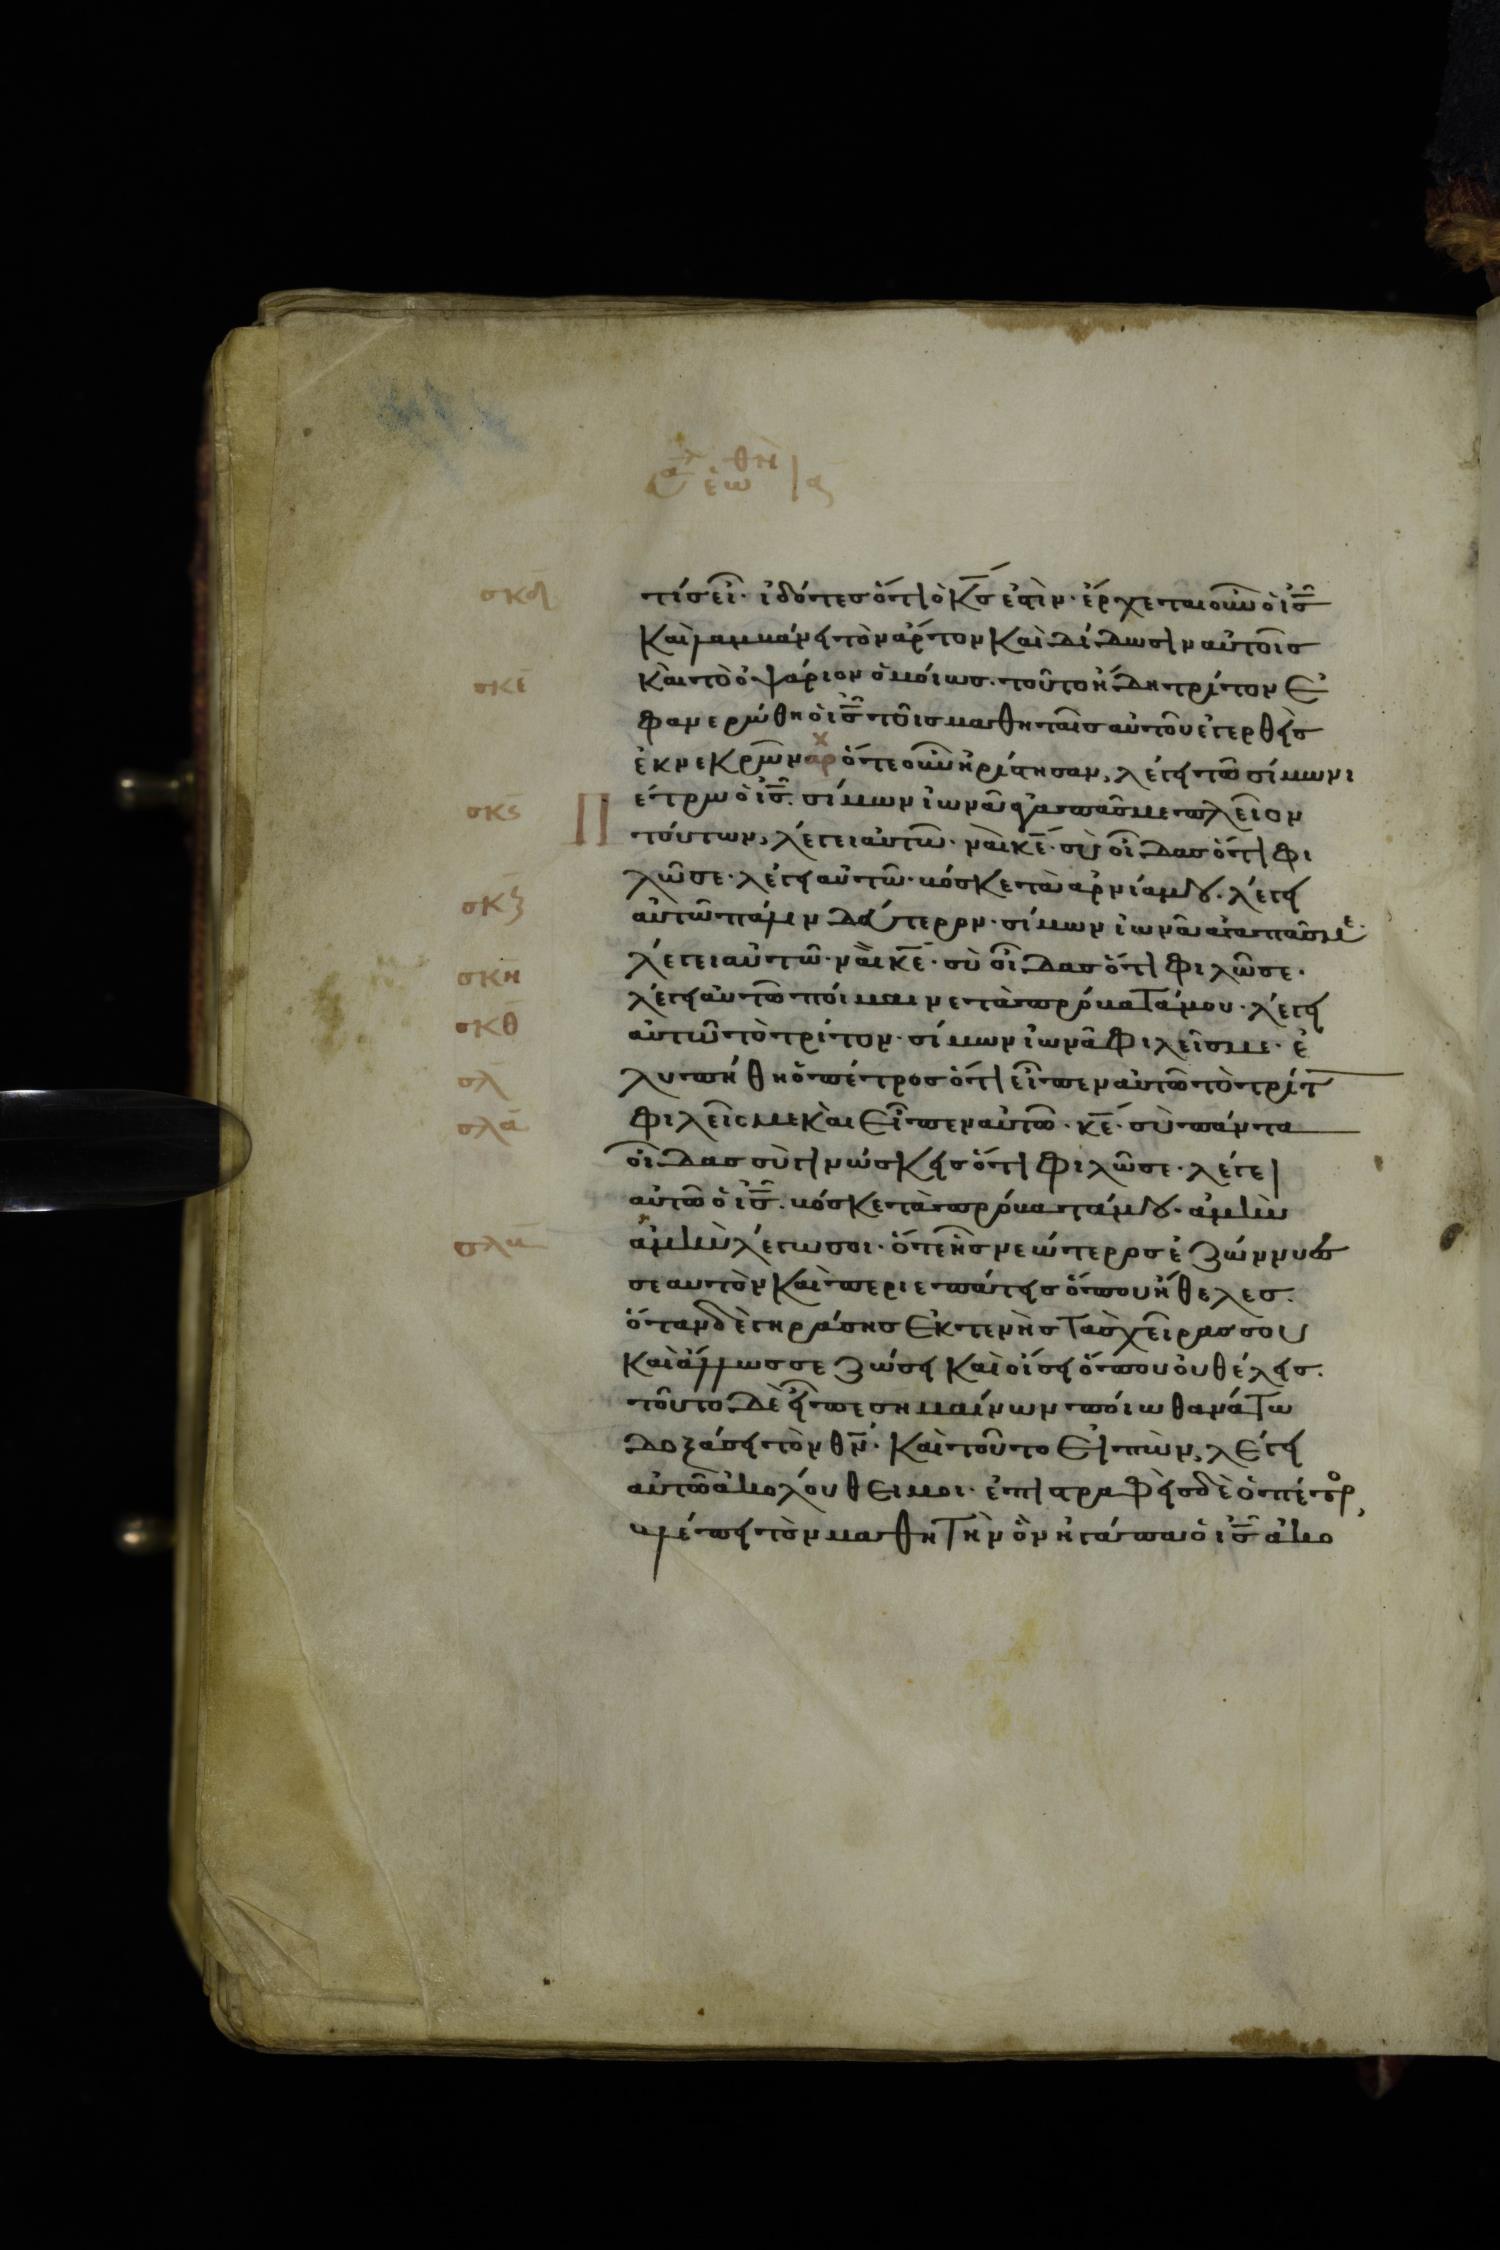 ἑωθι
σκδ
τίς εἶ· ἰδόντες ὅτι ὁ κς ἐστὶν· ἔρχεται οὖν ὁ ις
καὶ λαμβάνει τὸν ἄρτον καὶ δίδωσιν αὐτοῖς
σκε
καὶ τὸ ὀψάριον ὁμοίως. τοῦτο ἤδη τρίτον ἐ
φανερώθη ὁ ις τοῖς μαθηταῖς αὐτοῦ ἐγερθεὶς
ἐκ νεκρῶν αρχ ὅτε οὖν ἠρίστησαν, λέγει τῶ σίμωνι
σκς
Π
έτρω ὁ ις. σίμων ἰωνᾶ ἀγαπᾶς με πλεῖον
τούτων, λέγει αὐτῶ· ναὶ κε· σὺ οἶδας ὅτι φι
σκζ
λῶ σε· λέγει αὐτῶ· βόσκε τὰ ἀρνία μου. λέγει
αὐτῶ πάλιν δεύτερον· σίμων ἰωνᾶ ἀγαπᾶς με·
λέγει αὐτῶ· ναὶ κε· σὺ οἶδας ὅτι φιλῶ σε·
σκη
λέγει αὐτῶ ποίμαινε τὰ πρόβατά μου· λέγει
σκθ
αὐτῶ τὸ τρίτον· σίμων ἰωνᾶ φιλεῖς με· ἐ
σλ
λυπήθη ὁ πέτρος ὅτι εἶπεν αὐτῶ τὸ τρίτ
σλα
φιλεῖς με καὶ εἶπεν αὐτῶ· κε· σὺ πάντα
οἶδας σὺ γινώσκεις ὅτι φιλῶ σε· λέγει
αὐτῶ ὁ ις. βόσκε τὰ πρόβατά μου· ἀμὴν
σλβ
ἀμὴν λέγω σοι· ὅτε ἦς νεώτερος ἐζώννυες
σεαυτὸν καὶ περιεπάτεις ὅπου ἤθελες.
ὅταν δὲ γηράσης ἐκτενεῖς τὰς χεῖρας σου
καὶ ἄλλως σε ζώσει καὶ οἴσει ὅπου οὐ θέλεις.
τοῦτο δὲ εἶπε σημαίνων ποίω θανάτω
δοξάσει τὸν θν· καὶ τοῦτο εἰπὼν, λέγει
αὐτῶ ἀκολούθει μοι· ἐπιστραφεὶς δὲ ὁ πέτρο
βλέπει τὸν μαθητὴν ὃν ἠγάπα ὁ ις ἀκο